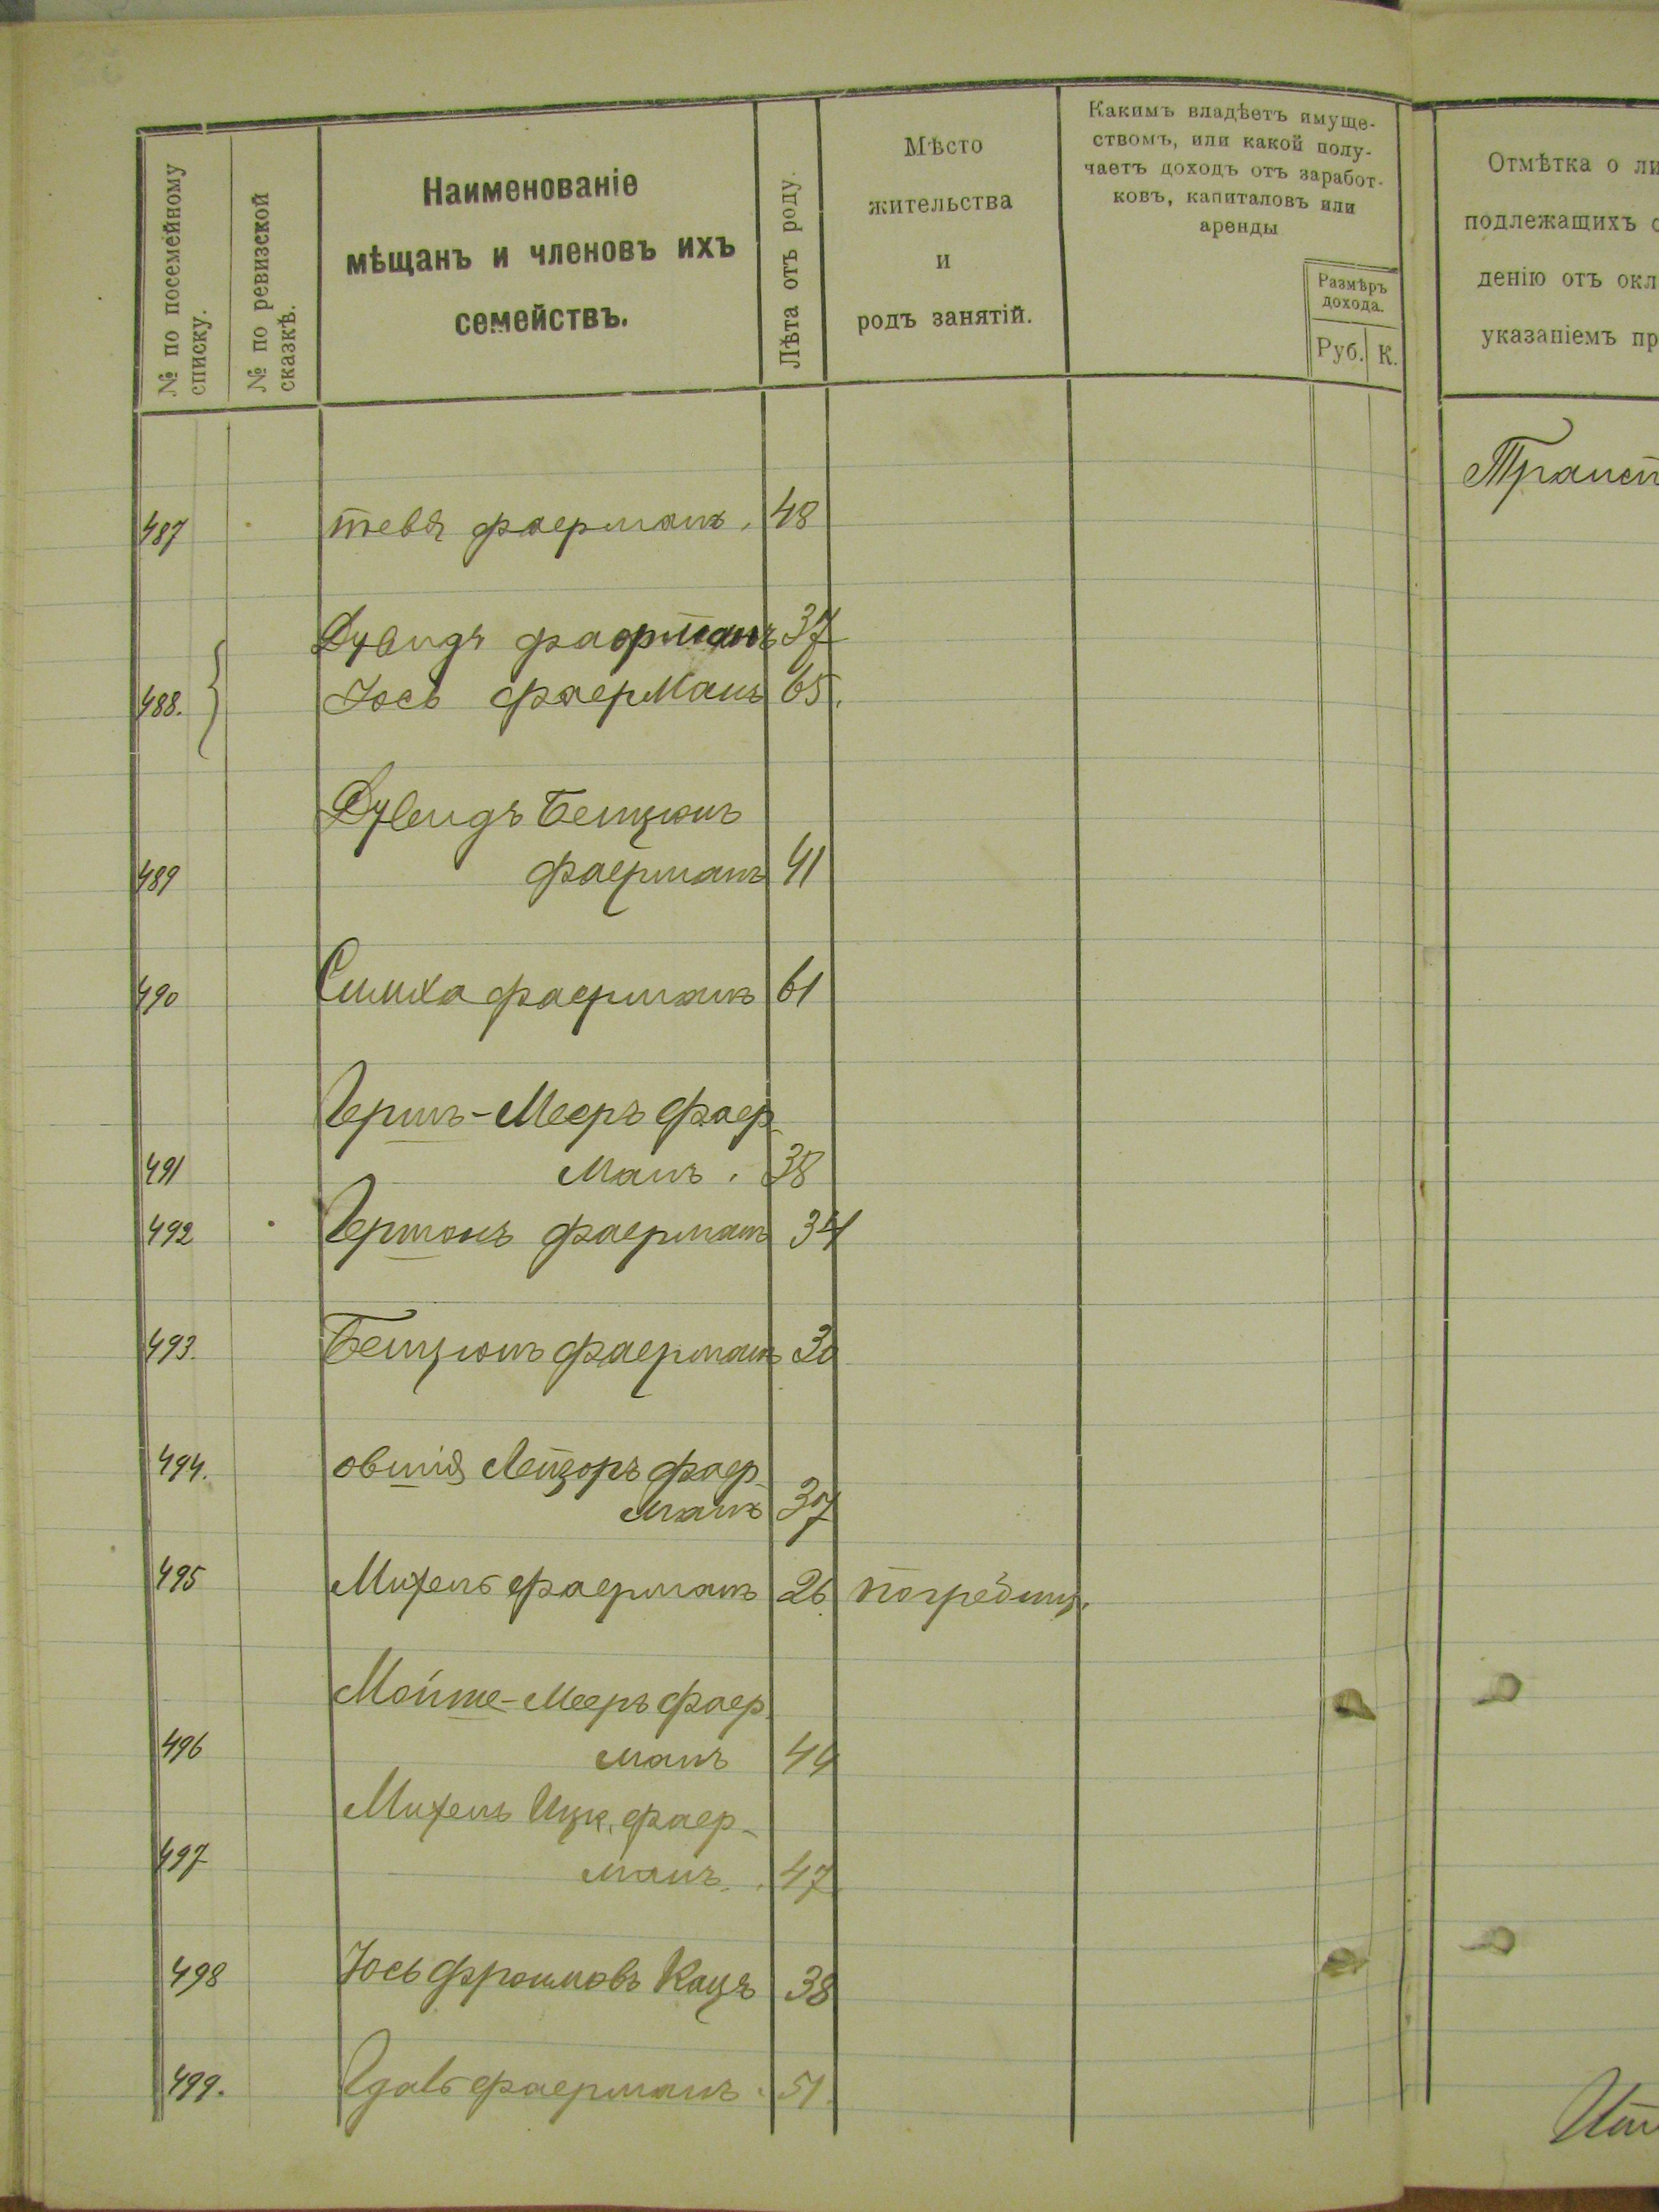 № по посемейному
списку.
№ по ревизской
сказкѣ.
Наименованіе
мѣщанъ и членовъ ихъ
семействъ.
Лѣта отъ роду.
Мѣсто
жительства
и
родъ занятій.
Какимъ владѣетъ имуще-
ствомъ, или какой полу-
чаетъ доходъ отъ заработ-
ковъ, капиталовъ или
аренды
Размѣръ
дохода.
Руб. К.
Отмѣтка о ли
подлежащихъ о
денію отъ окл
указаніемъ пр
Трансп
487 тевя фаерманъ. 48
Дувидъ фаерманъ 37
488. Іось фаерманъ 65.
Дувидъ Бенціонъ
489 фаерманъ 41
490 Симха фаерманъ 61
Гершъ-Мееръ фаер
491 манъ. 38
492 Гершонъ фаерманъ 34
493. Бенціонъ фаерманъ 30
494. овшія Лейзоръ фаер-
манъ 37
495 Михель фаерманъ 26 погребищ.
Мойше-Мееръ фаер
496 манъ 44
Михель Ицк. фаер-
497 манъ. 47
498 Іось Фроимовъ Кацъ 38
499. фаерманъ. 51.